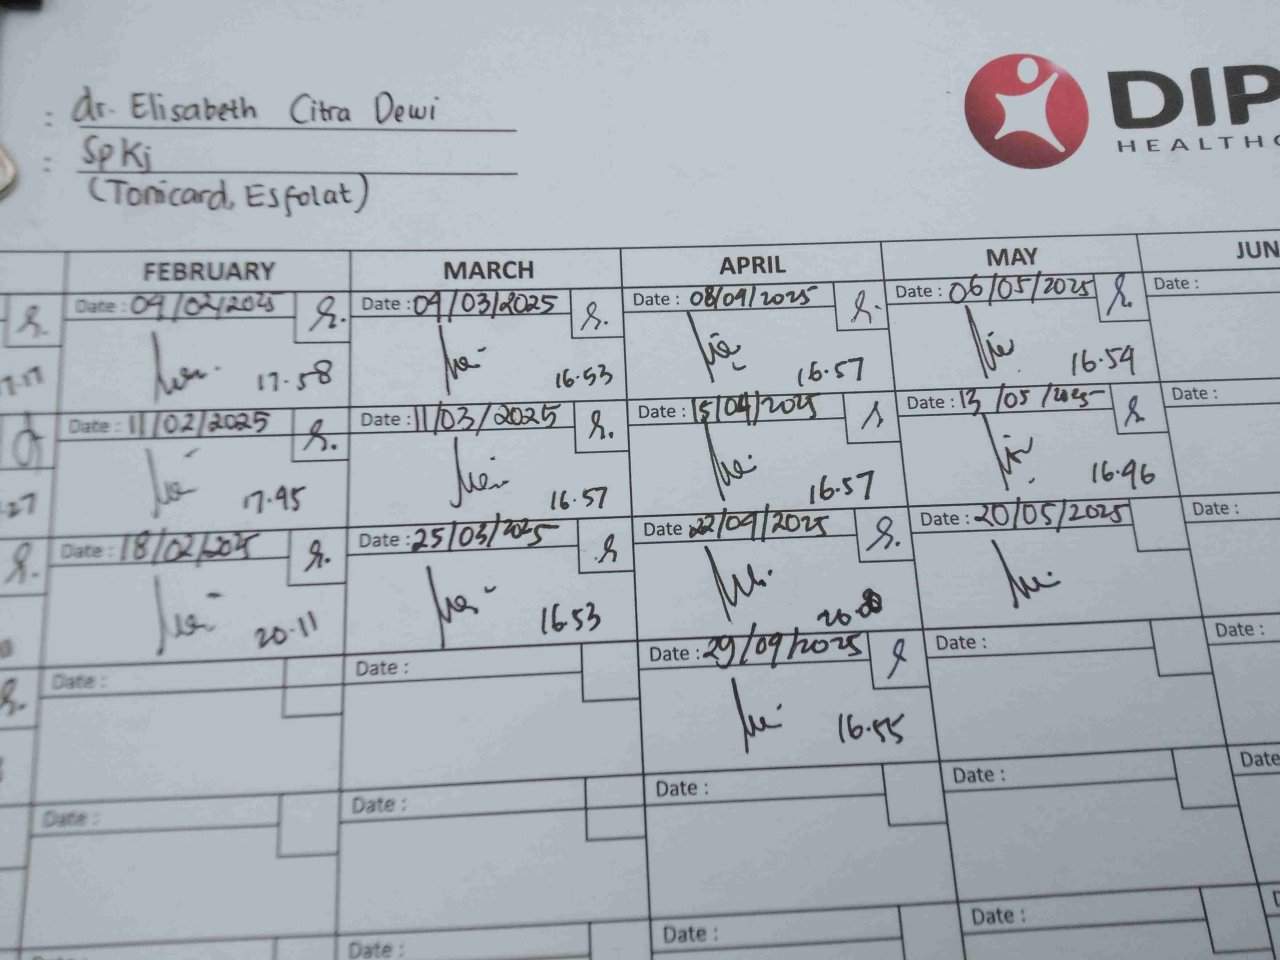 : dr. Elisabeth Citra Dewi
: SpKj
(Tonicard, Esfolat)
DIP
HEALTHC
FEBRUARY MARCH APRIL MAY JUN
Date : 04/02/2025 Date : 04/03/2025 Date : 08/04/2025 Date : 06/05/2025 Date :
17.58 16.53 16.57 16.54
Date : 11/02/2025 Date : 11/03/2025 Date : 15/04/2025 Date : 13/05/2025 Date :
17.45 16.57 16.57 16.46
Date : 18/02/2025 Date : 25/03/2025 Date 22/04/2025 Date : 20/05/2025 Date :
20.11 16.53
Date : Date : Date : 29/04/2025 Date : Date :
16.55
Date : Date : Date : Date : Date
Date : Date : Date : Date :